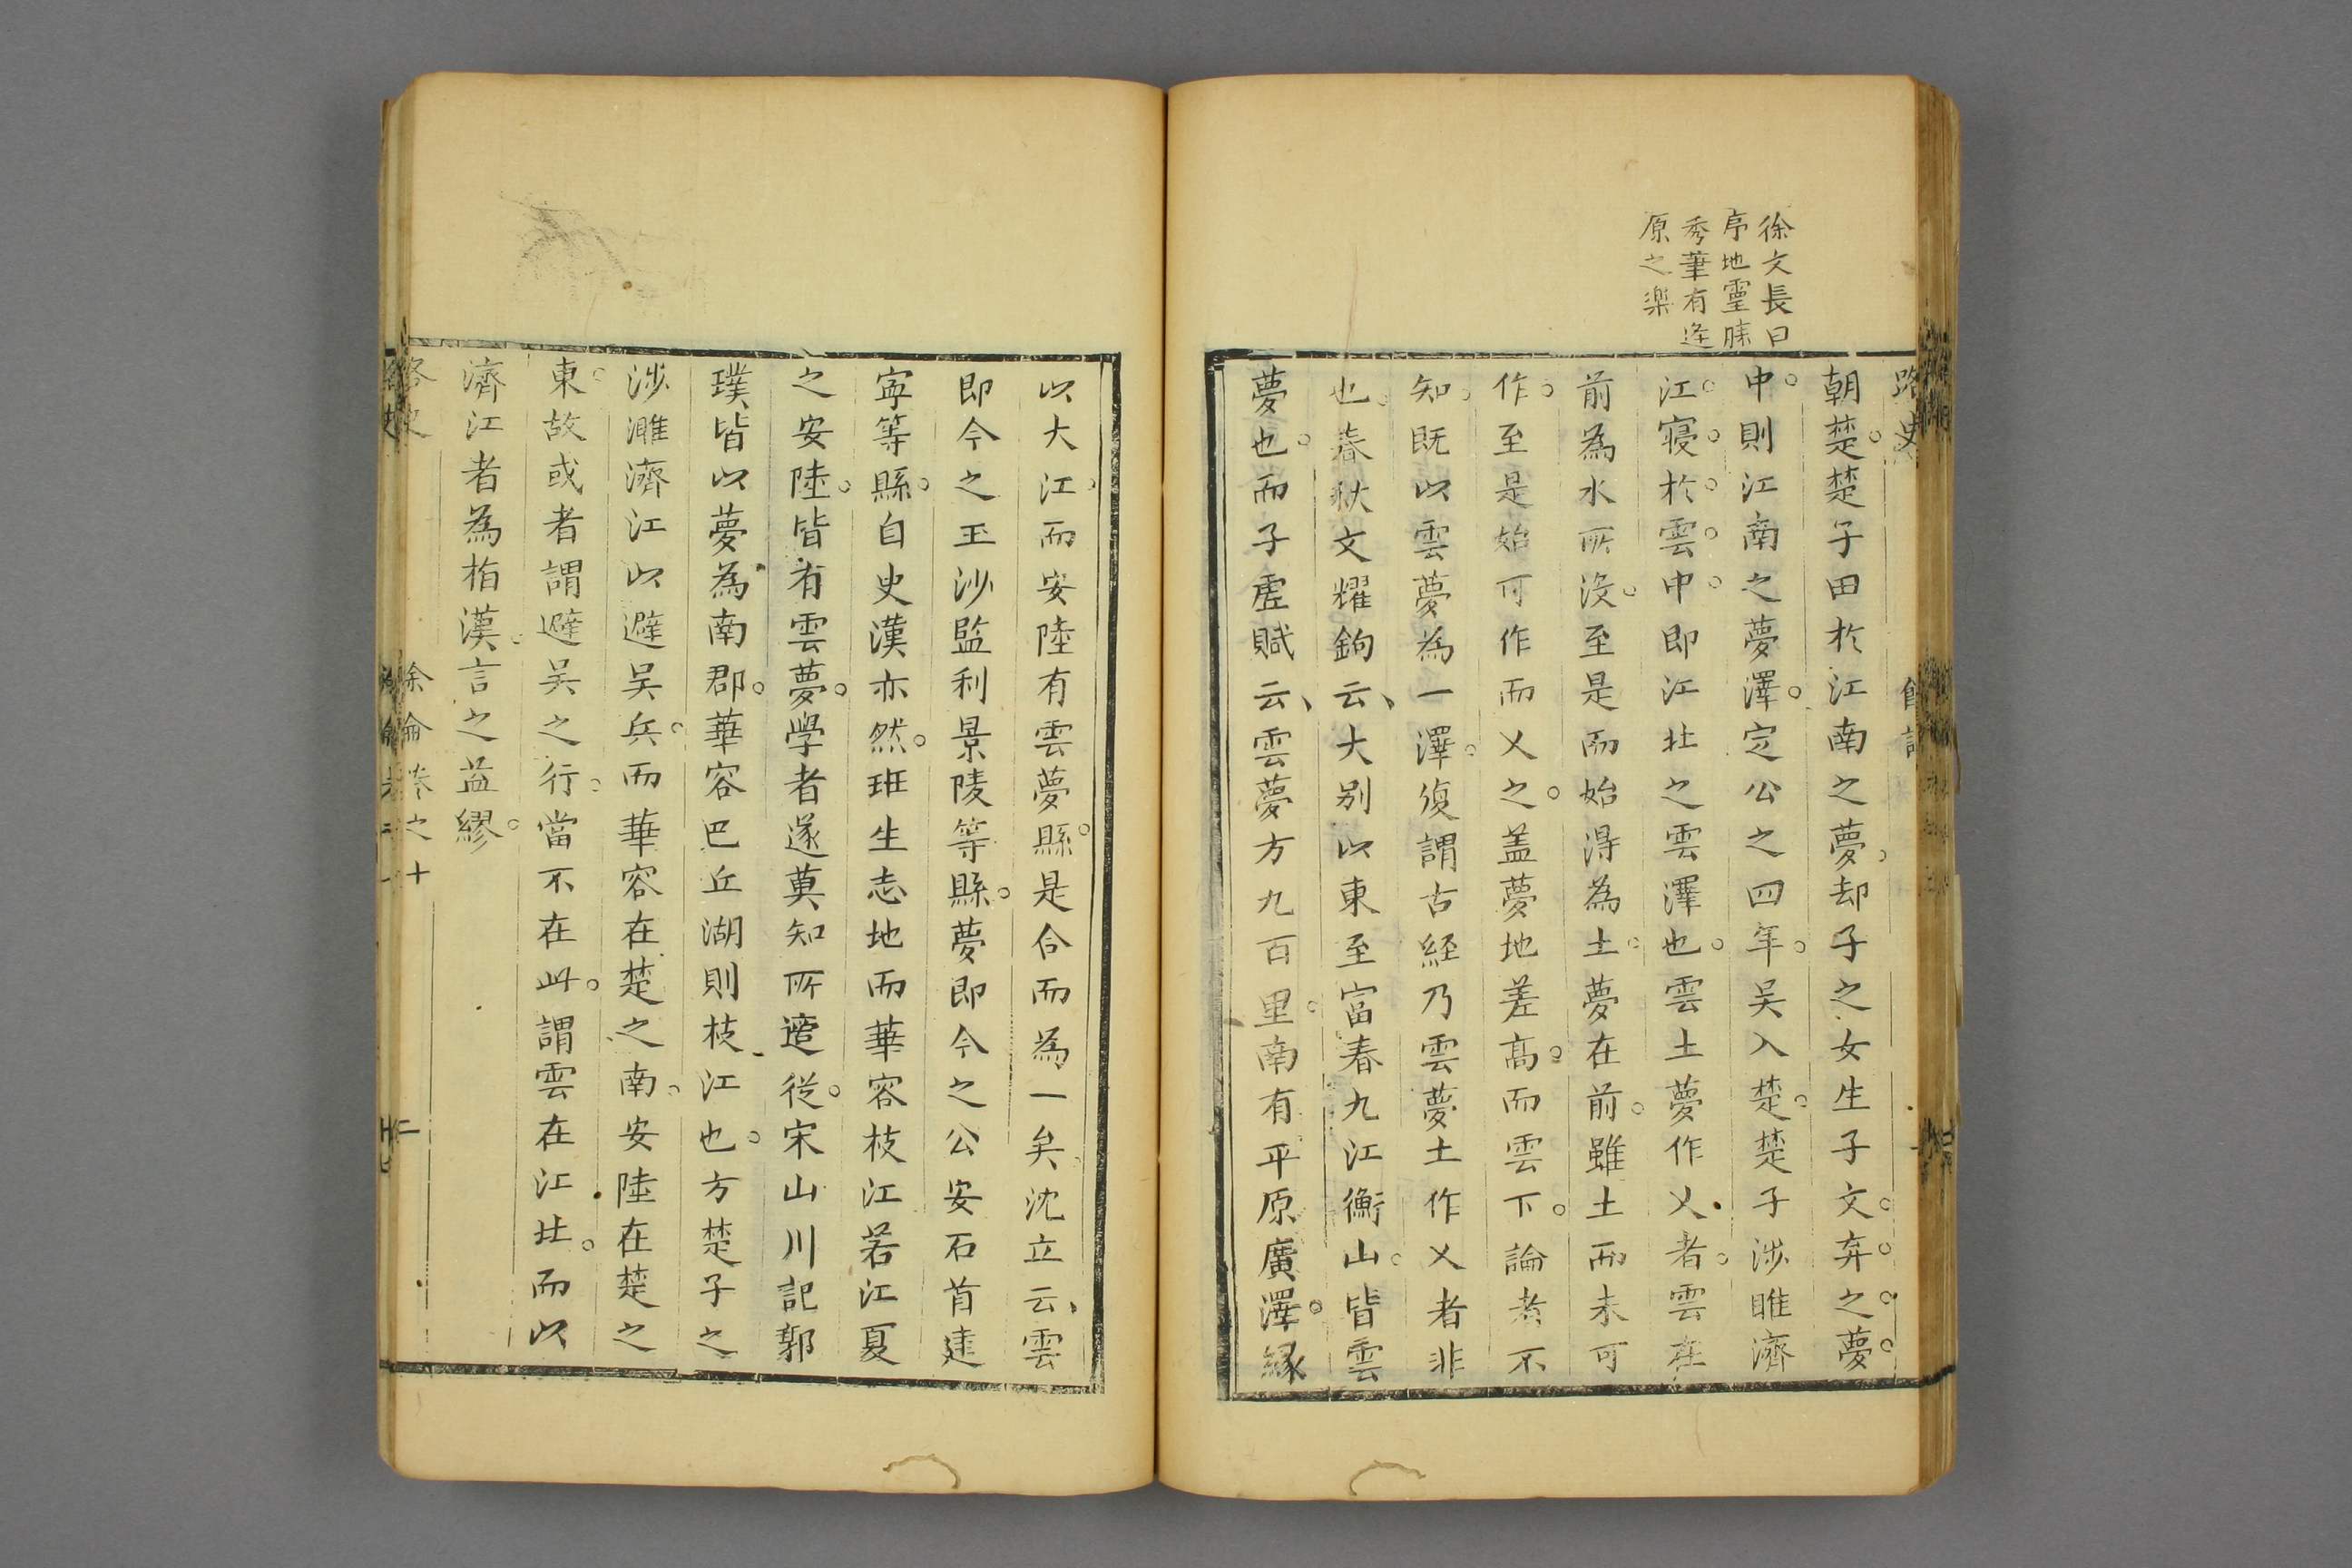 徐文長曰
序地靈㑞
秀華有逢
原之樂
路史
朝楚。楚子田於江南之夢。却子之女生子文。弃。之。夢。
中。則江南之夢澤。定公之四年。吴入楚。楚子涉睢濟
江。寝。於。雲。中。即江北之雲澤也。雲土夢作乂者。雲在
前為水所没。至是而始淂為土。夢在前。雖土而未可
作。至是始可作而乂之。盖夢地差高。而雲下。論者不
知。既以雲夢為一澤。復謂古經乃雲夢土作乂者非
也。春秋文耀鉤云、大别以東至富春九江衡山。皆雲
夢也。而子虗賦云、雲夢方九百里。南有平原廣澤。緣
以大江、而安陸有雲夢縣。是合而為一矣、沈立云、雲
即今之玉沙監利景陵等縣。夢即今之公安石首建
寜等縣。自史漢亦然。班生志地而華容枝江若江夏
之安陸。皆有雲夢。學者遂莫知所遧從。宋山川記郭
璞皆以夢為南郡。華容巴丘湖則枝江也。方楚子之
涉濉濟江以避吴兵。而華容在楚之南。安陸在楚之
東。故或者謂避吴之行。當不在此。謂雲在江北。而以
濟江者為栢漢。言之益繆。
路史
余侖卷之十
二